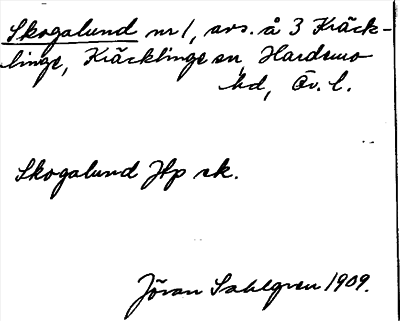 Skogalund nr 1, avs. å 3 Kräck-
linge, Kräcklinge sn, Hardemo
hd, Öv. l.
Skogalund Jfp sk.
Jöran Sahlgren 1909.